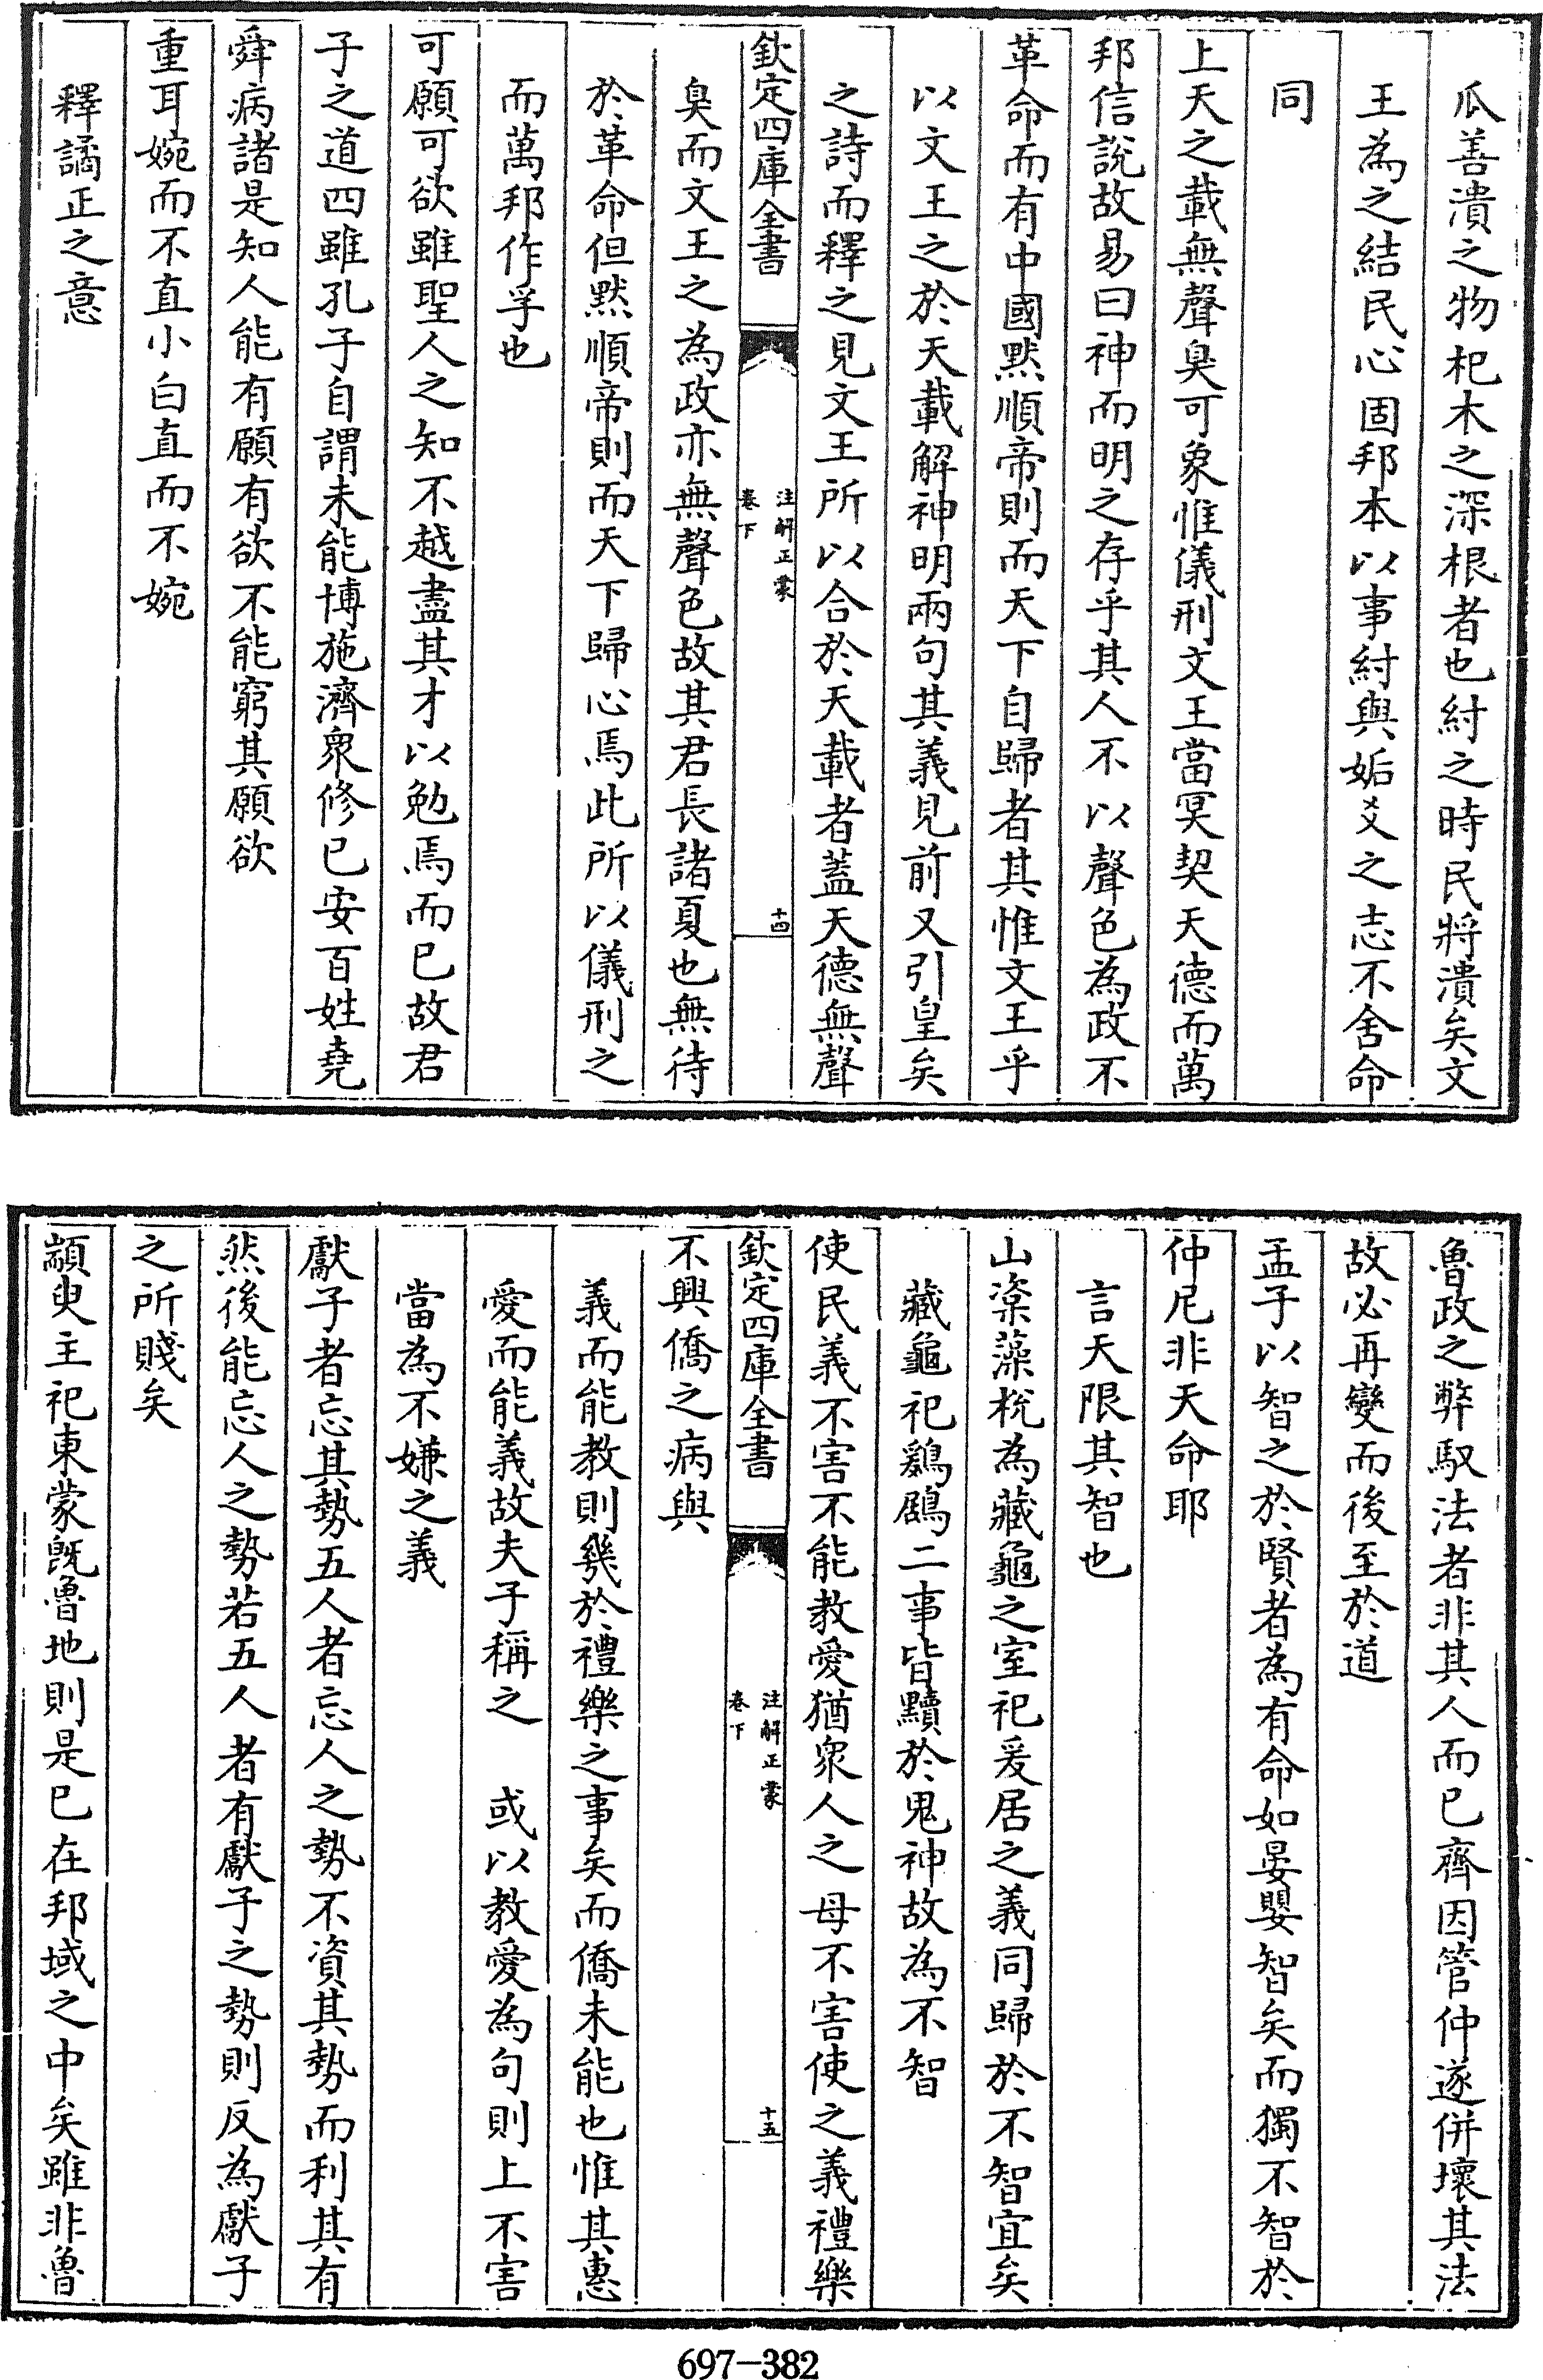 瓜善潰之物杞木之深根者也紂之時民將潰矣文
王為之結民心固邦本以事紂與姤爻之志不舍命
同
上天之載無聲臭可象惟儀刑文王當冥契天德而萬
邦信說故易曰神而明之存乎其人不以聲色為政不
革命而有中國默順帝則而天下自歸者其惟文王乎
以文王之於天載解神明兩句其義見前又引皇矣
之詩而釋之見文王所以合於天載者蓋天德無聲
欽定四庫全書
注解正蒙
卷下
十四
臭而文王之為政亦無聲色故其君長諸夏也無待
於革命但默順帝則而天下歸心焉此所以儀刑之
而萬邦作孚也
可願可欲雖聖人之知不越盡其才以勉焉而已故君
子之道四雖孔子自謂未能博施濟衆修已安百姓堯
舜病諸是知人能有願有欲不能窮其願欲
重耳婉而不直小白直而不婉
釋譎正之意
魯政之弊馭法者非其人而已齊因管仲遂併壞其法
故必再變而後至於道
孟子以智之於賢者為有命如晏嬰智矣而獨不智於
仲尼非天命耶
言天限其智也
山楶藻梲為藏龜之室祀爰居之義同歸於不智宜矣
藏龜祀鶢鶋二事皆黷於鬼神故為不智
使民義不害不能教愛猶衆人之母不害使之義禮樂
欽定四庫全書
注解正蒙
卷下
十五
不興僑之病與
義而能教則幾於禮樂之事矣而僑未能也惟其惠
愛而能義故夫子稱之　或以教愛為句則上不害
當為不嫌之義
獻子者忘其勢五人者忘人之勢不資其勢而利其有
然後能忘人之勢若五人者有獻子之勢則反為獻子
之所賤矣
顓臾主祀東蒙既魯地則是已在邦域之中矣雖非魯
697-382